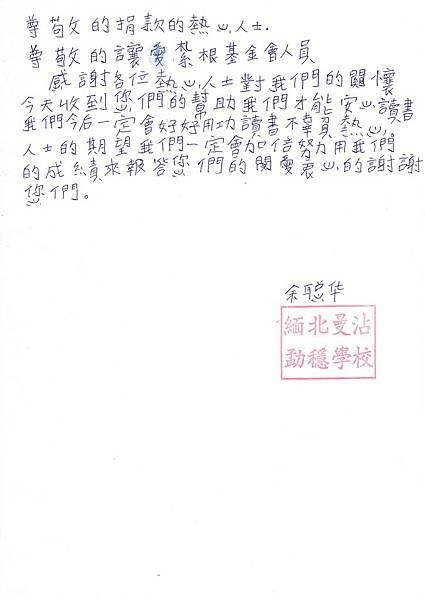 尊敬的捐款的熱心人士.
尊敬的讓愛紮根基金會人員
感謝各位熱心人士對我們的關懷
今天收到您們的幫助我們才能安心讀書
我們今后一定會好好用功讀書不辜負熱心。
人士的期望我們一定會加倍努力用我們
的成績來報答您們的関愛衷心的謝謝
您們。
余聰华
緬北曼沾
勐穩學校